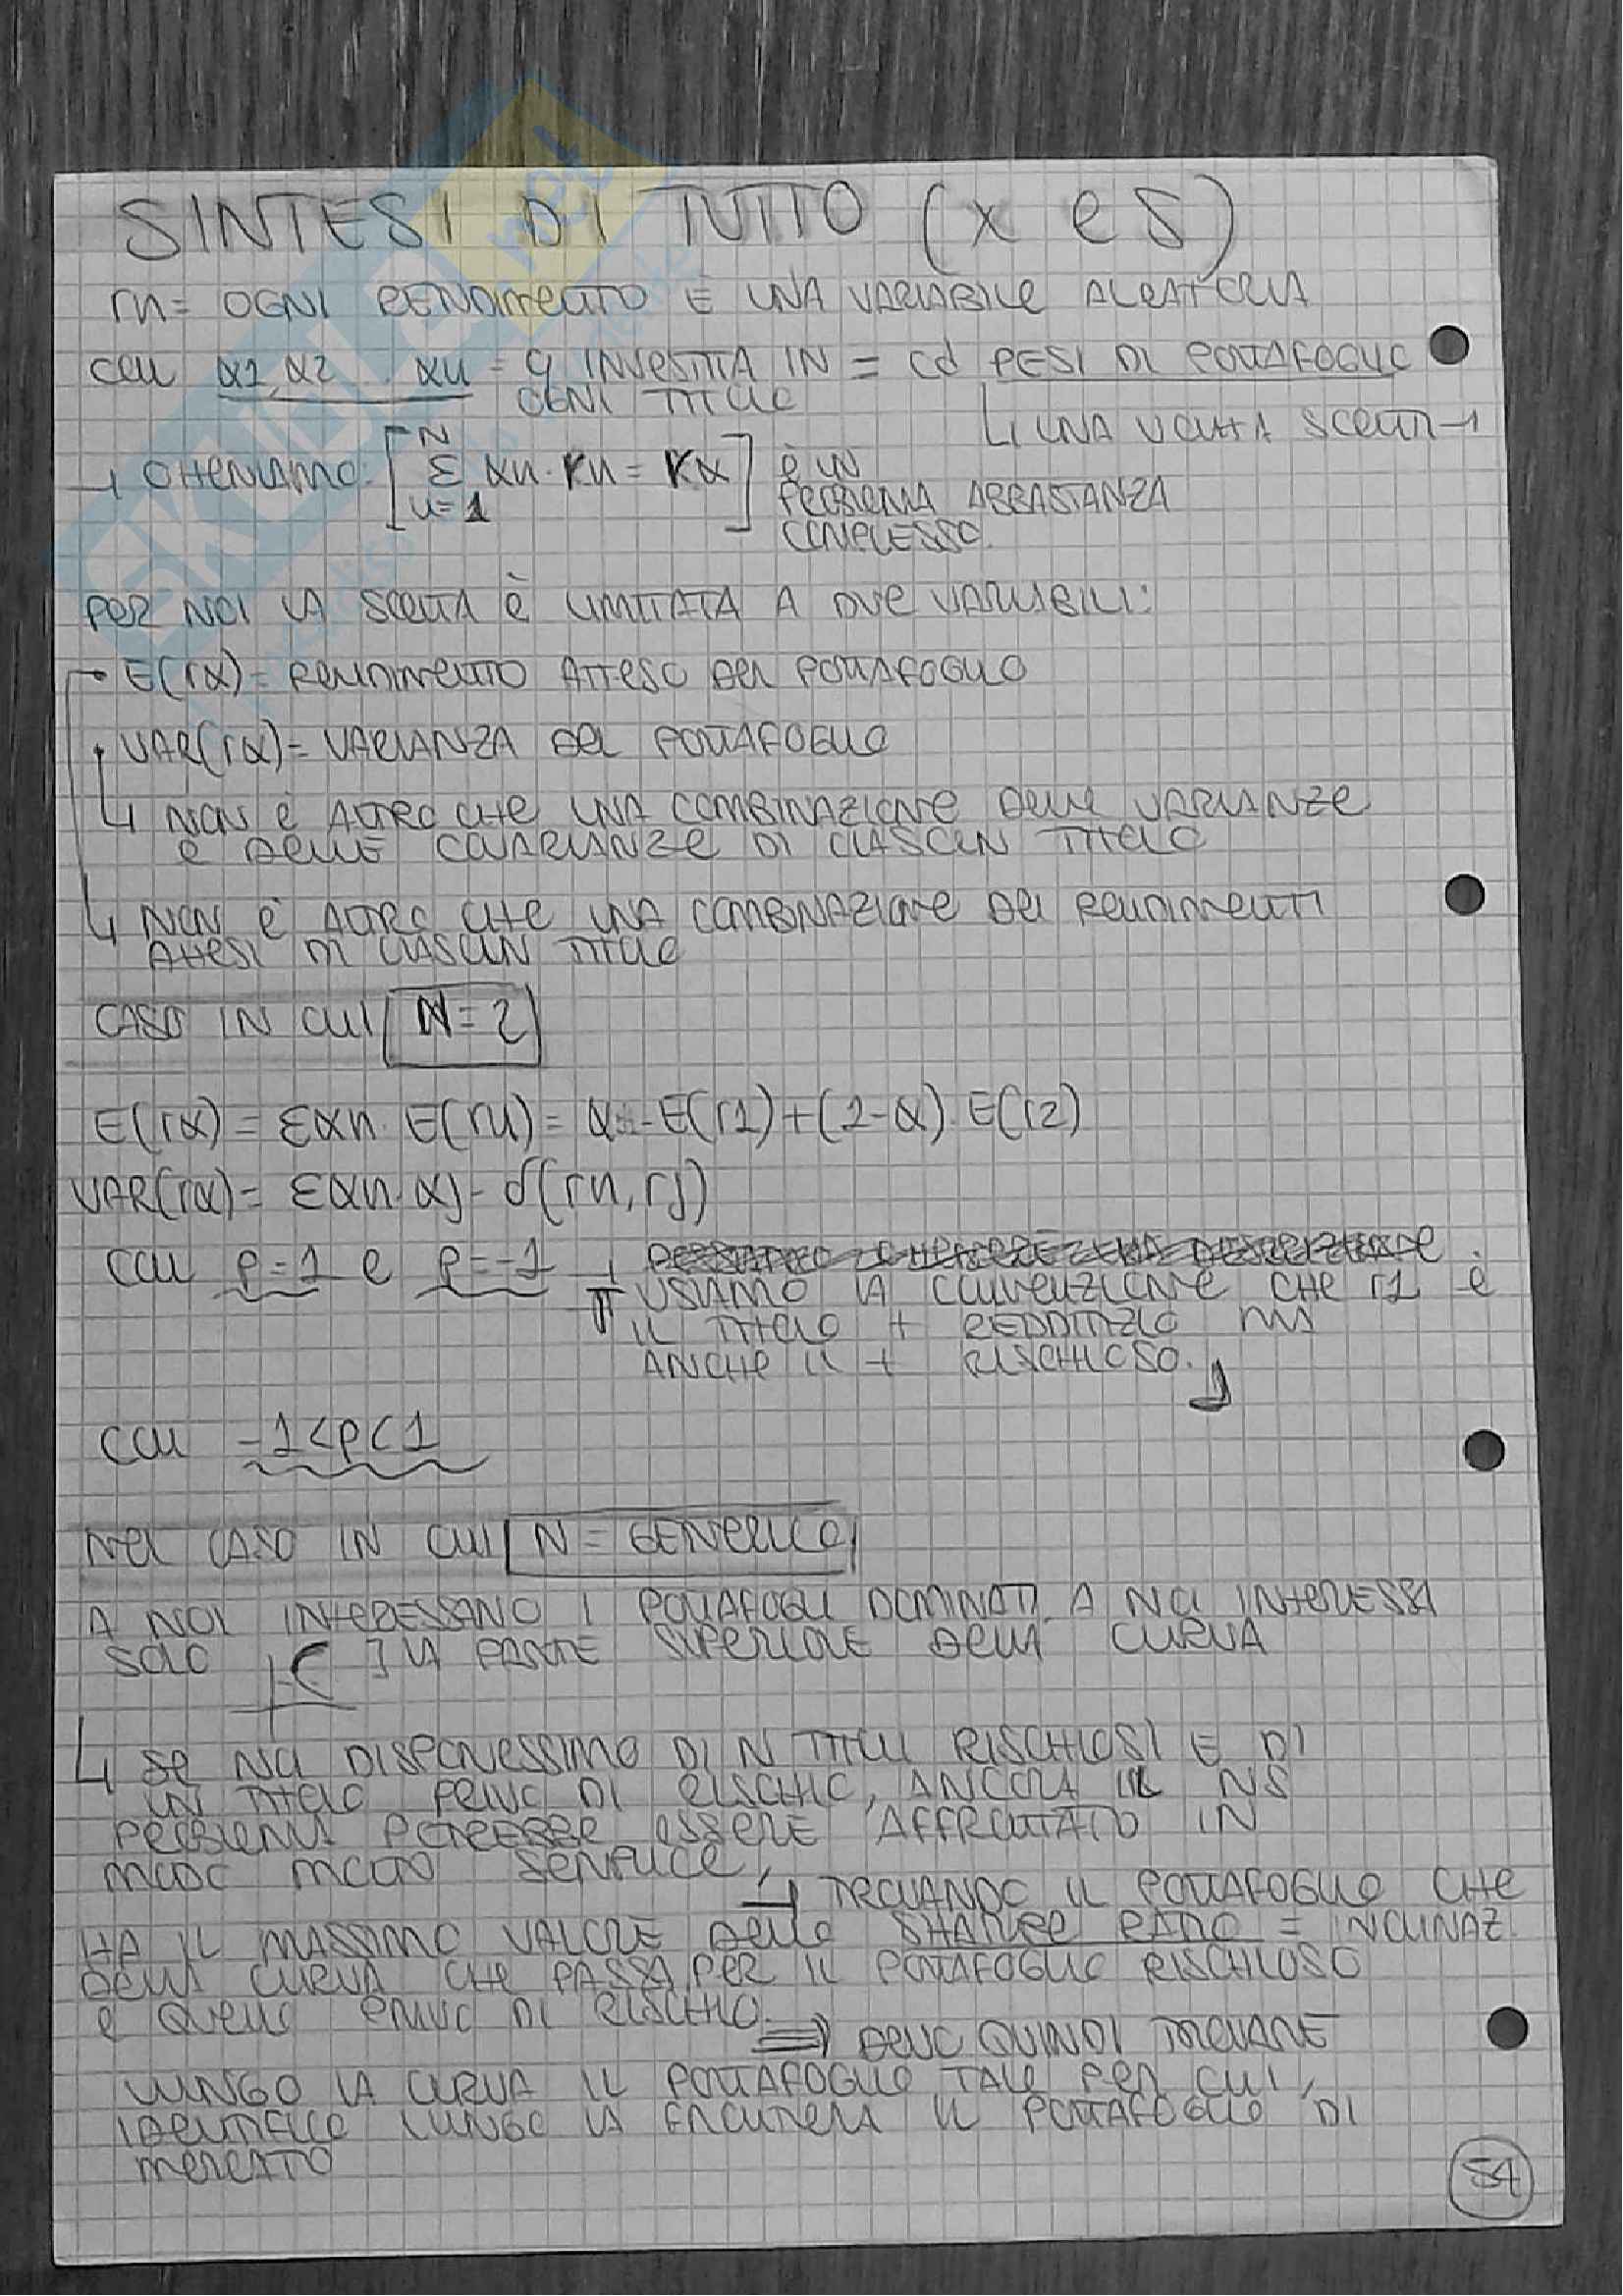 SINTESI DI TUTTO (x es)
rn = OGNI RENDIMENTO È UNA VARIABILE ALEATORIA
CON α1, α2 .. αn = q INVESTITA IN OGNI TITOLO = cd PESI DI PORTAFOGLIO
↳ UNA VOLTA SCELTI →
→ OTTENIAMO: [ N Σ n=1 αn · rn = rα ] È UN
PROBLEMA ABBASTANZA
COMPLESSO.
PER NOI LA SCELTA È LIMITATA A DUE VARIABILI:
• E(rα) = RENDIMENTO ATTESO DEL PORTAFOGLIO
• VAR(rα) = VARIANZA DEL PORTAFOGLIO
↳ NON È ALTRO CHE UNA COMBINAZIONE DELLE VARIANZE
E DELLE COVARIANZE DI CIASCUN TITOLO
↳ NON È ALTRO CHE UNA COMBINAZIONE DEI RENDIMENTI
ATTESI DI CIASCUN TITOLO
CASO IN CUI N = 2
E(rα) = Σαn · E(rn) = α · E(r1) + (1-α) · E(r2)
VAR(rα) = Σαn · αj · σ(rn, rj)
CON ρ=1 e ρ=-1 →
USIAMO LA CONVENZIONE CHE r1 è
IL TITOLO + REDDITIZIO MA
ANCHE IL + RISCHIOSO.
CON -1<ρ<1
NEL CASO IN CUI N = GENERICO
A NOI INTERESSANO I PORTAFOGLI DOMINATI. A NOI INTERESSA
SOLO ] LA PARTE SUPERIORE DELLA CURVA
↳ SE NOI DISPONESSIMO DI N TITOLI RISCHIOSI E DI
UN TITOLO PRIVO DI RISCHIO, ANCORA IL NS
PROBLEMA POTREBBE ESSERE AFFRONTATO IN
MODO MOLTO SEMPLICE,
↳ TROVANDO IL PORTAFOGLIO CHE
HA IL MASSIMO VALORE DELLO SHARPE RATIO = INCLINAZ.
DELLA CURVA CHE PASSA PER IL PORTAFOGLIO RISCHIOSO
E QUELLO PRIVO DI RISCHIO.
⇒ DEVO QUINDI TROVARE
LUNGO LA CURVA IL PORTAFOGLIO TALE PER CUI,
IDENTIFICO LUNGO LA FRONTIERA IL PORTAFOGLIO DI
MERCATO
54
SKUOLA
.net